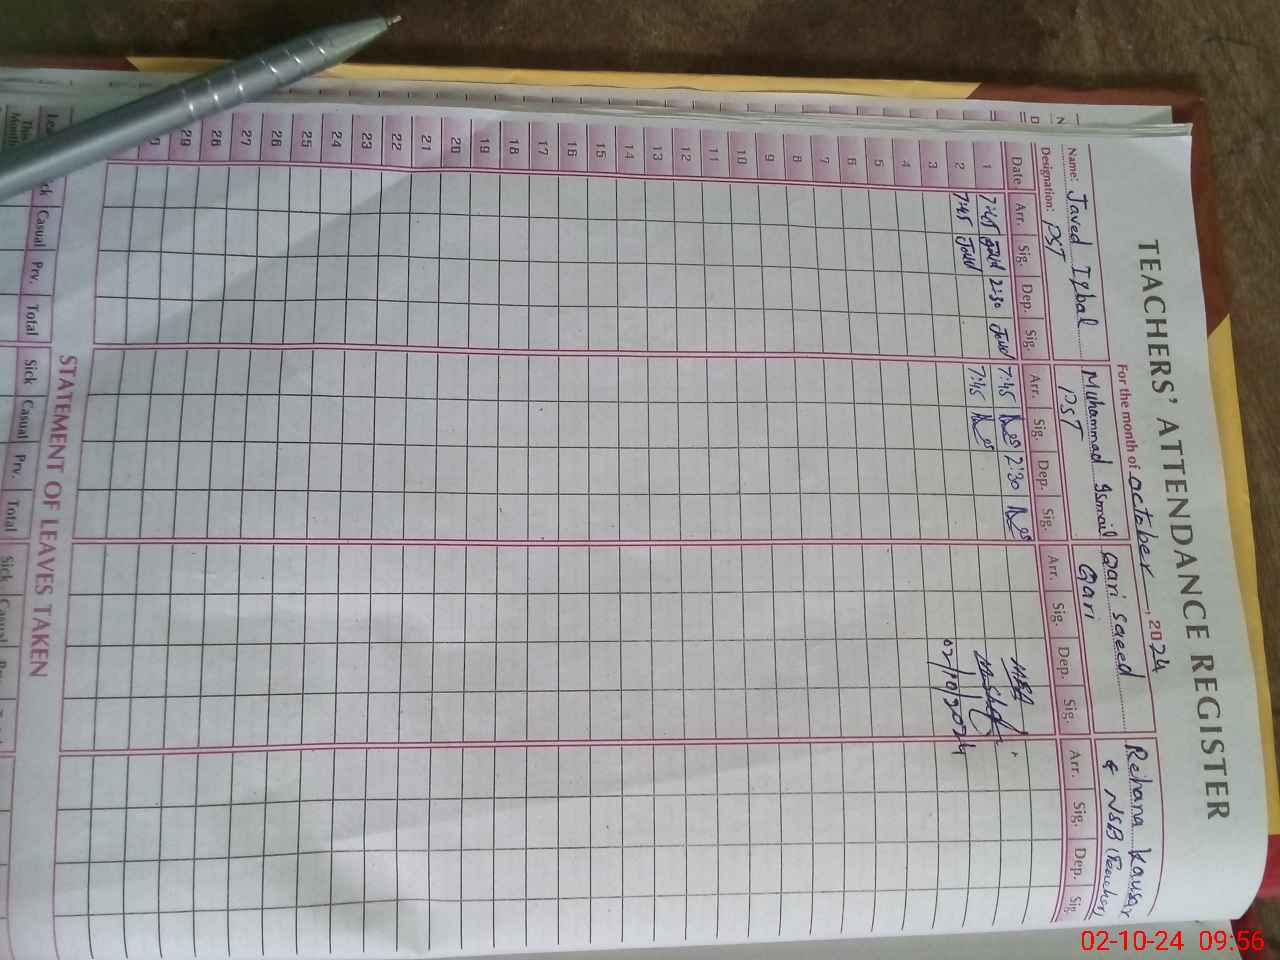 TEACHERS' ATTENDANCE REGISTER
For the month of October, 2024
Name: Javed Iqbal Muhammad Ismail Qari Saeed Rehana Kausar
Designation: PST PST Qari & NSB (Teacher)
Date Arr. Sig. Dep. Sig. Arr. Sig. Dep. Sig. Arr. Sig. Dep. Sig. Arr. Sig. Dep. Sig.
1 7:45 Javed 2:30 Javed 7:45 2:30
2 7:45 Javed 7:45
3 02/10/2024
4
5
6
7
8
9
10
11
12
13
14
15
16
17
18
19
20
21
22
23
24
25
26
27
28
29
STATEMENT OF LEAVES TAKEN
Sick Casual Prv. Total Sick Casual Prv. Total Sick Casual
This
Month
02-10-24 09:56